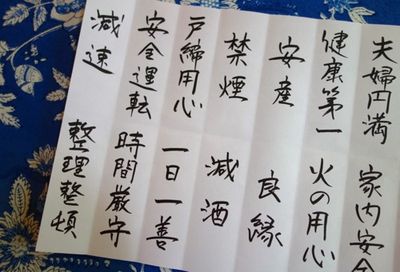 夫婦円満 家内安全
健康第一 火の用心
安産 良縁
禁煙 減酒
戸締用心 一日一善
安全運転 時間厳守
減速 整理整頓